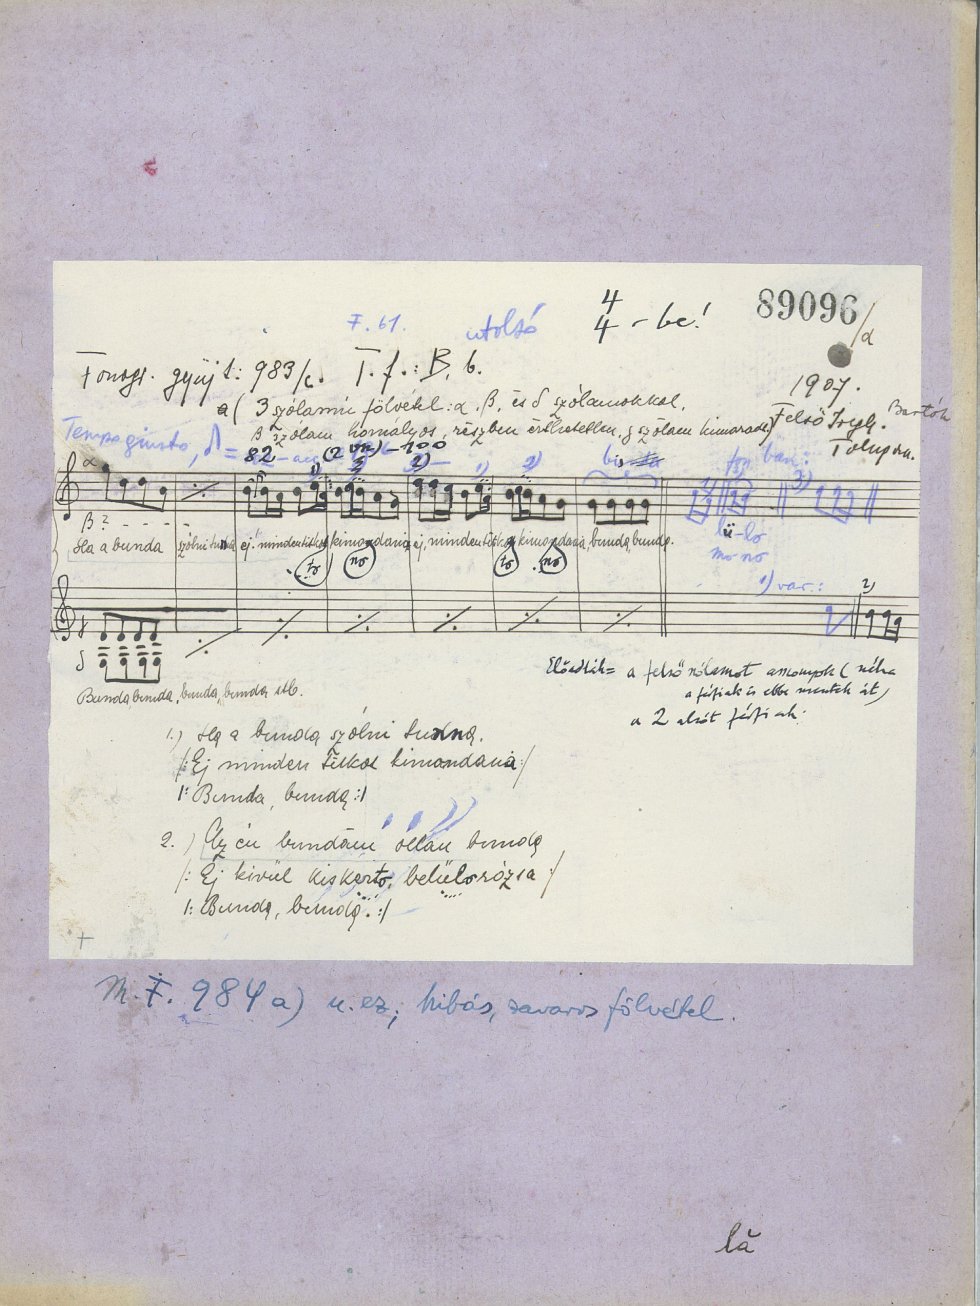 89096/a
4
4 -be!
F. 61. utolsó
Fonogr. gyűjt: 983/c. T. f.: B. b.
1907.
a( 3 szólamú fölvétel: α, β, és δ szólamokkal,
Felső Iregh. Bartók
β szólam homályos, részben érthetetlen, γ szólam kimaradt)
Tolna m.
Tempo giusto, ♩ = 82
(2 vsz.) -100
1) 2) 1) 2) bis
ban: 3)
α
β ? - - - -
Ha a bunda szólni tudna ej, minden titkot kimondana ej, minden titkot kimondana, bunda, bunda.
lü-lo
mo-no
to no to no
1) var.: 2)
γ
δ
Bunda, bunda, bunda, bunda stb.
Előadták= a felső szólamot asszonyok (néha
a férfiak is ebbe mentek át)
a 2 alsót férfiak.
1.) Ha a bunda szólni tudna,
/: Ej minden titkot kimondana :/
/: Bunda, bunda :/
2.) Az én bundám ollan bunda
/: Ej kivül kiskerto, belülo rózsa :/
/: Bunda, bunda. :/
+
M. F. 984 a) u. ez; hibás, zavaros fölvétel.
lă